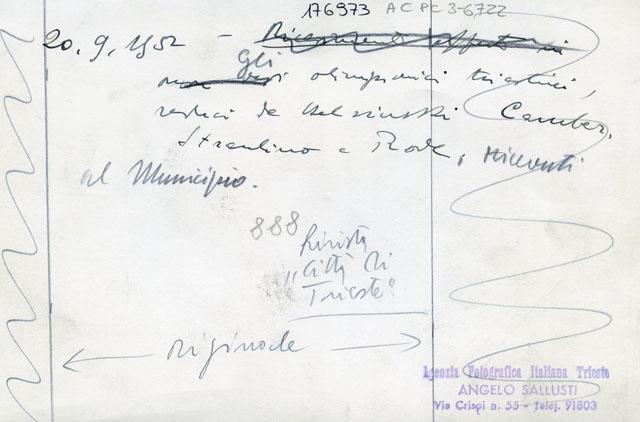 176973 ACPC 3-6722
20.9.1952 - Ricevimento offerto in
Gli
olimpionici triestini,
reduci da Helsinski Camber,
Strantino e Rode, ricevuti
al Municipio.
888
Rivista
"Città di
Trieste"
originale
Agenzia Fotografica Italiana Trieste
ANGELO SALLUSTI
Via Crispi n. 55 - Telef. 91803